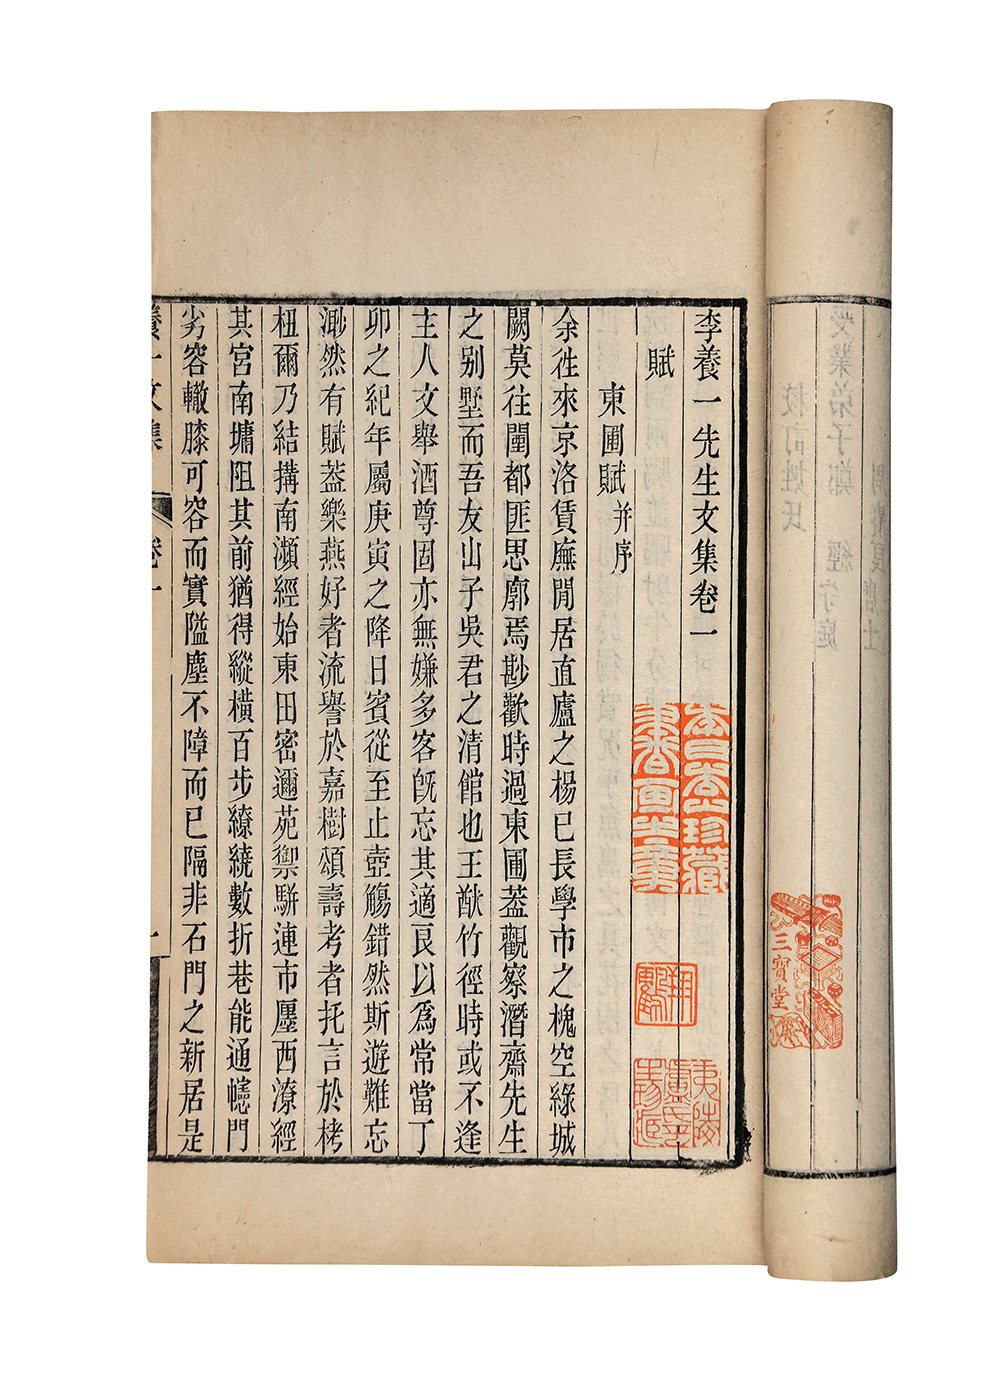 李養一先生文集卷一
賦
東圃賦并序
余徃來京洛賃廡閒居直廬之楊已長學市之槐空綠城
闕莫往闉都匪思廓焉尠歡時過東圃葢觀察潛齋先生
之别墅而吾友山子吳君之清館也王猷竹徑時或不逢
主人文舉酒尊固亦無嫌多客旣忘其適良以爲常當丁
卯之紀年屬庚寅之降日賓從至止壺觴錯然斯遊難忘
渺然有賦葢樂燕好者流譽於嘉樹頌壽考者托言於栲
杻爾乃結搆南瀕經始東田密邇苑禦駢連市廛西潦經
其宮南墉阻其前猶得縱橫百步繚繞數折巷能通幰門
劣容轍膝可容而實隘塵不障而已隔非石門之新居是
養一文集
卷一
一
三寶堂